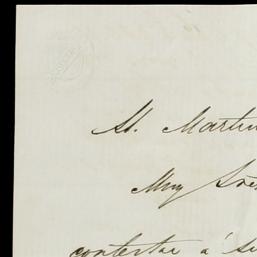 M. Martin
Muy Señ
contestar á su